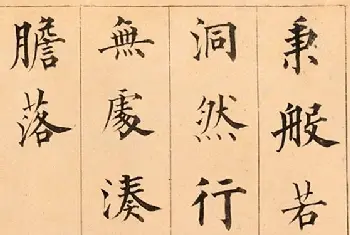 秉般若
洞然行
無處湊
膽落